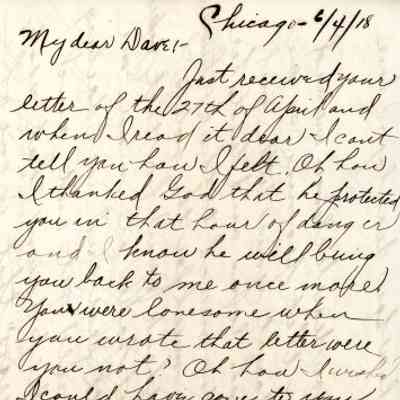 Chicago - 6/4/18
My dear Dave:-
Just received your
letter of the 27th of April and
when I read it dear I cant
tell you how I felt. Oh how
I thanked God that he protected
you in that hour of danger
and I know he will bring
you back to me once more!
You were lonesome when
you wrote that letter were
you not? Oh how I wish
I could have gone to you